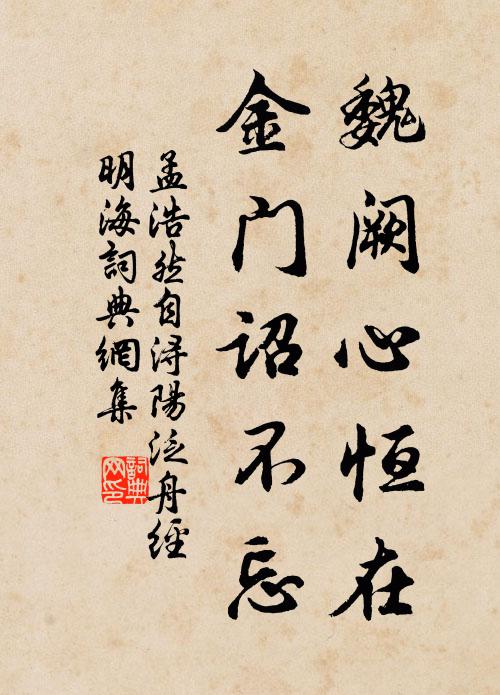 魏阙心恒在
金门诏不忘
孟浩然自潯陽泛舟經
明海詞典網集
詞典
网印